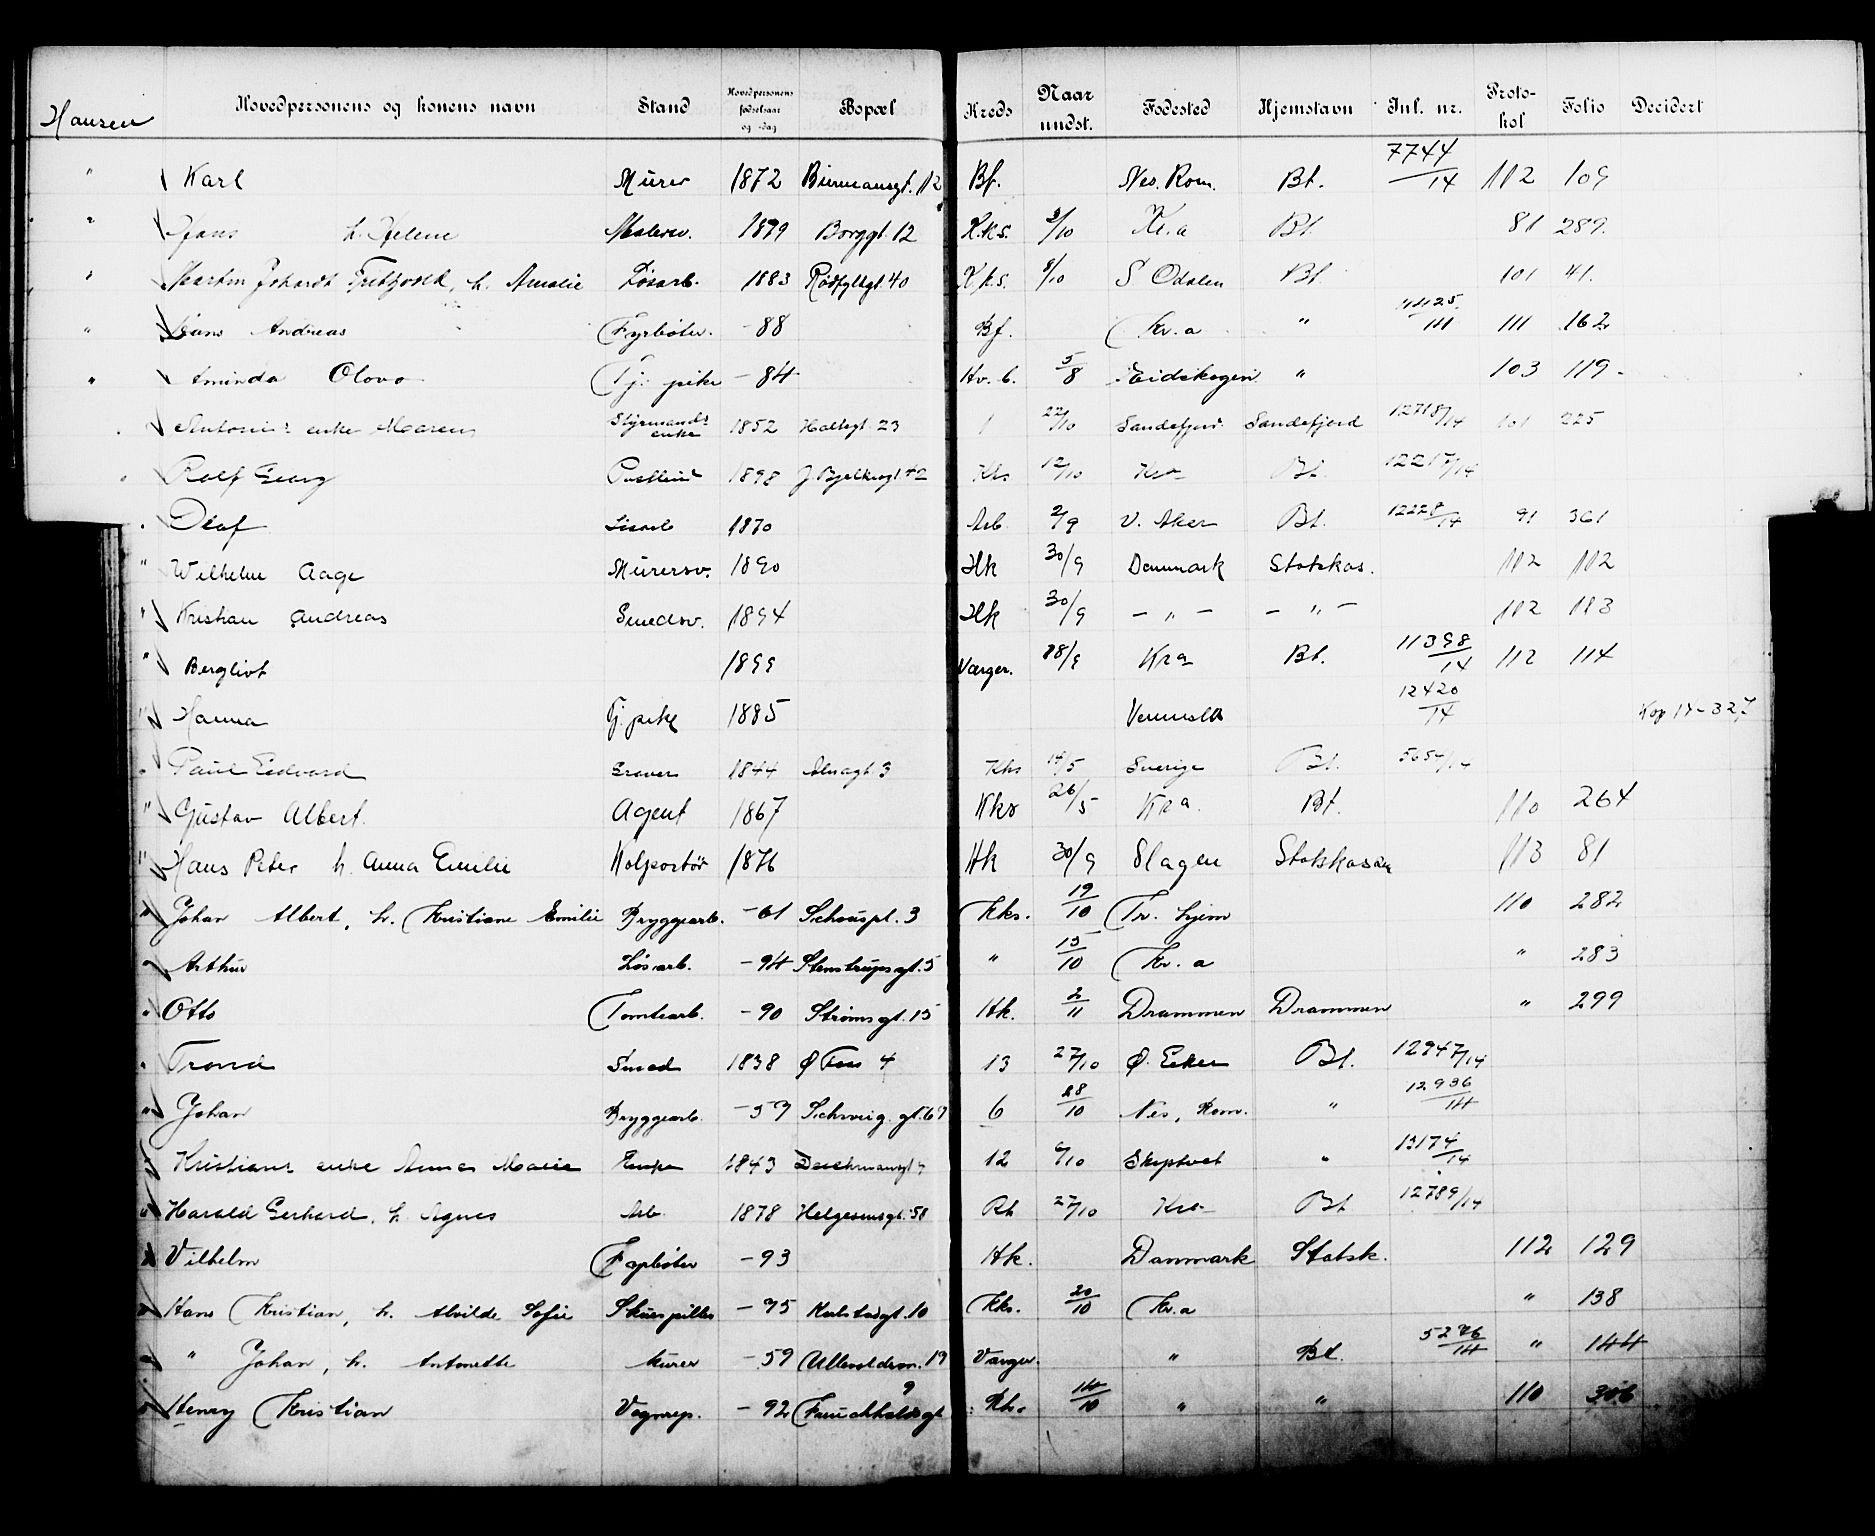 Hansen Hovedpersonens og konens navn Stand Hovedpersonens fødselsaar og -dag Bopæl Kreds Naar undst. Fødested Hjemstavn Inl. nr. Protokol Folio Decidert
" Karl Murer 1872 Biermannsgt. 12 Bf. Nes. Rom. Bt. 7744/14 112 109
" Hans h. Helene Malersv. 1879 Borggt. 12 K.k.s. /10 Kr.a Bt. 81 289.
" Martin h. Amalie Løsarb. 1883 Rødfyllgt. 40 K.k.s. /10 S Odalen Bt. 101 41.
" Hans Andreas Fyrbøter. - 88 Bf. Kr. a " 111 162
" Aminda Olava Tj. pike - 84 Hv. b. 5/8 Eidskogen " 103 119
" enke Maren Styrmands enke 1852 Holtegt. 23 1 22/10 Sandefjord Sandefjord 12718/14 101 225
" Rolf Georg Postbud 1898 42 Kks 12/10 Kra Bt. 12217/14
" Olaf Løsarb 1870 Arb. 2/9 V. Aker Bt. 12228/14 91 361
" Wilhelm Aage Murersv. 1890 Hk 30/9 Danmark Statskas. 112 112
" Kristian Andreas Smedsv. 1894 Hk 30/9 - " - - " - 112 113
" Bergliot 1899 Værger. 18/9 Kra Bt. 11398/14 112 114
" Hanna Tj. pike 1885 12420/14 Kop 14-327
" Paul Edvard Graver 1844 Alnagt. 3 Kks 14/5 Sverige Bt. 5654/14
" Gustav Albert. Agent 1867 Kks 26/5 Kra. Bt. 110 264
" Hans Peter h. Anna Emilie Kolportør 1876 Hk 30/9 Slagen Statskassen 113 81
" Johan Albert, h. Kristiane Emilie Bryggearb. - 61 Schouspl. 3 Kks. 19/10 Tr. hjem 110 282
" Arthur Løsarb. - 94 Stenstrupsgt. 5 " 15/10 Kr. a " 283
" Otto Tomtearb. - 90 Strømsgt. 15 Hk. 2/11 Drammen Drammen " 299
" Trond Smed 1838 Ø Foss 4 13 27/10 Ø. Eker Bt. 12947/14
" Johan Bryggearb. - 57 Schweig. gt. 67 6 28/10 Nes, Rom. " 12936/14
" Kristians enke Anna Marie Enke 1843 Deichmansgt 12 /10 Skiptvet " 13174/14
" Harald Gerhard, h. Agnes Arb. 1878 Helgesensgt. 58 Rh 27/10 Kra Bt 12789/14
" Vilhelm Fyrbøter - 93 Hk. Danmark Statsk. 112 129
" Hans Kristian, h. Alvilde Sofie Skuespiller - 75 Kalstadgt. 10 Kks. 20/10 Kr.a " 138
" " Johan, h. Antonette Murer - 59 Ullevoldsvn. 19 Værger. " Bt. 5276/14 " 144
" Henry Kristian Vognrep. - 92 9 Rh. 14/10 " " 110 306